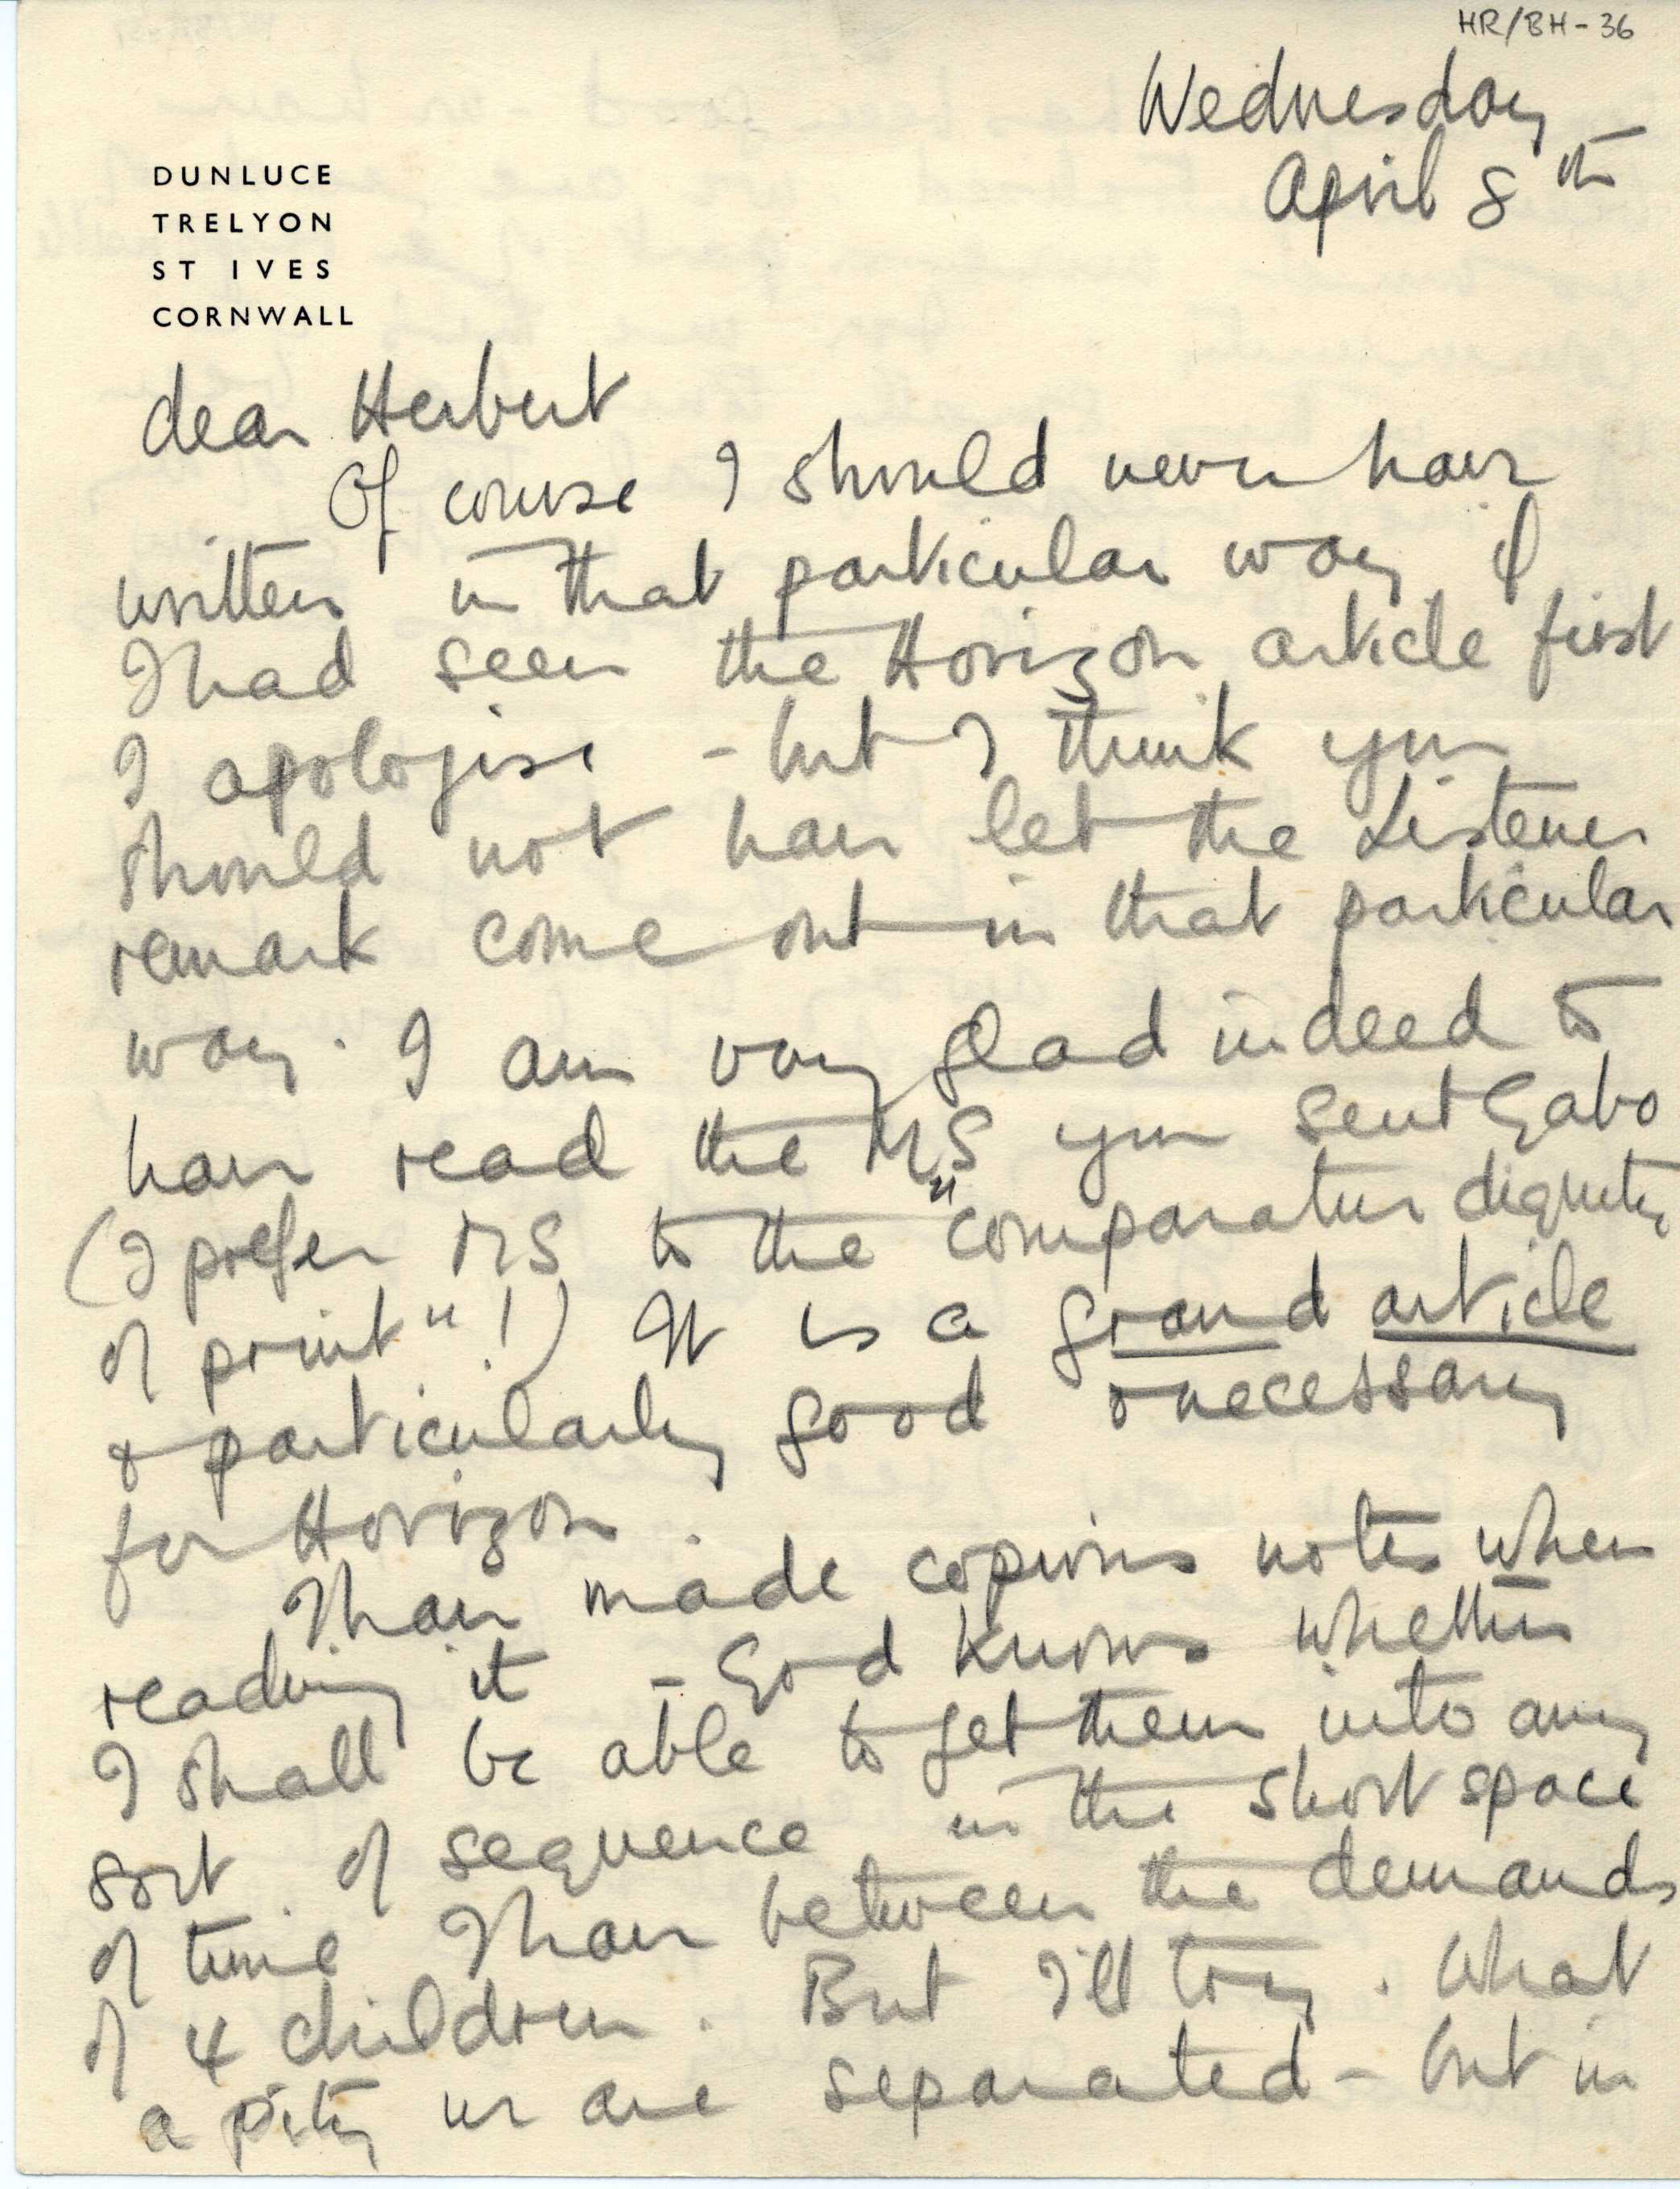 HR/BH-36
Wednesday
April 8th
DUNLUCE
TRELYON
ST IVES
CORNWALL
dear Herbert
Of course I should never have
written in that particular way if
I had seen the Horizon article first
I apologise - but I think you
should not have let the Listener
remark come out in that particular
way. I am very glad indeed to
have read the MS you sent Gabo
(I prefer MS to the "comparative dignity
of print"!) It is a grand article
& particularly good & necessary
for Horizon.
I have made copious notes when
reading it - God knows whether
I shall be able to get them into any
sort of sequence in the short space
of time I have between the demands
of 4 children. But I'll try. What
a pity we are separated - but in